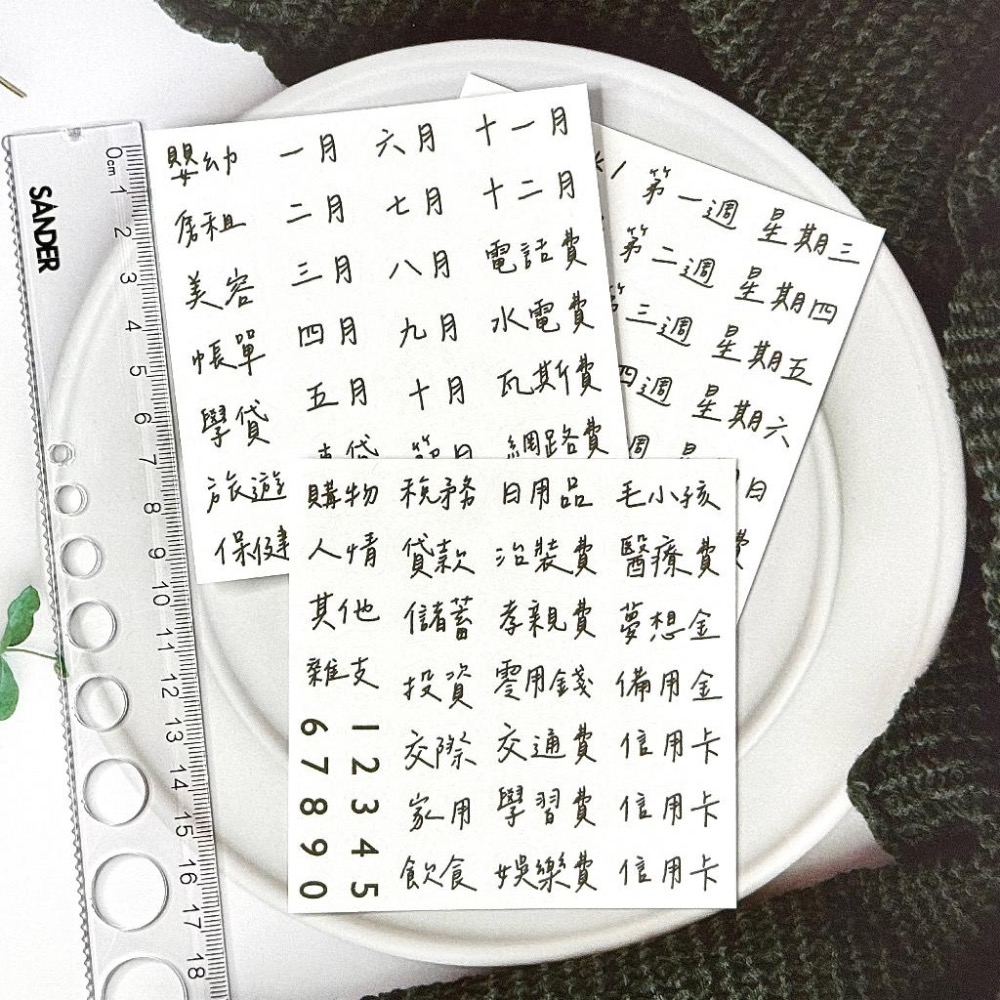 SANDER
0cm 1 2 3 4 5 6 7 8 9 10 11 12 13 14 15 16 17 18
嬰幼 一月 六月 十一月
房租 二月 七月 十二月
美容 三月 八月 電話費
帳單 四月 九月 水電費
學貸 五月 十月 瓦斯費
車貸 節日 網路費
旅遊
保健
第一週 星期三
第二週 星期四
第三週 星期五
四週 星期六
週 星
日
費
購物 稅務 日用品 毛小孩
人情 貸款 治裝費 醫療費
其他 儲蓄 孝親費 夢想金
雜支 投資 零用錢 備用金
交際 交通費 信用卡
家用 學習費 信用卡
飲食 娛樂費 信用卡
1 2 3 4 5
6 7 8 9 0